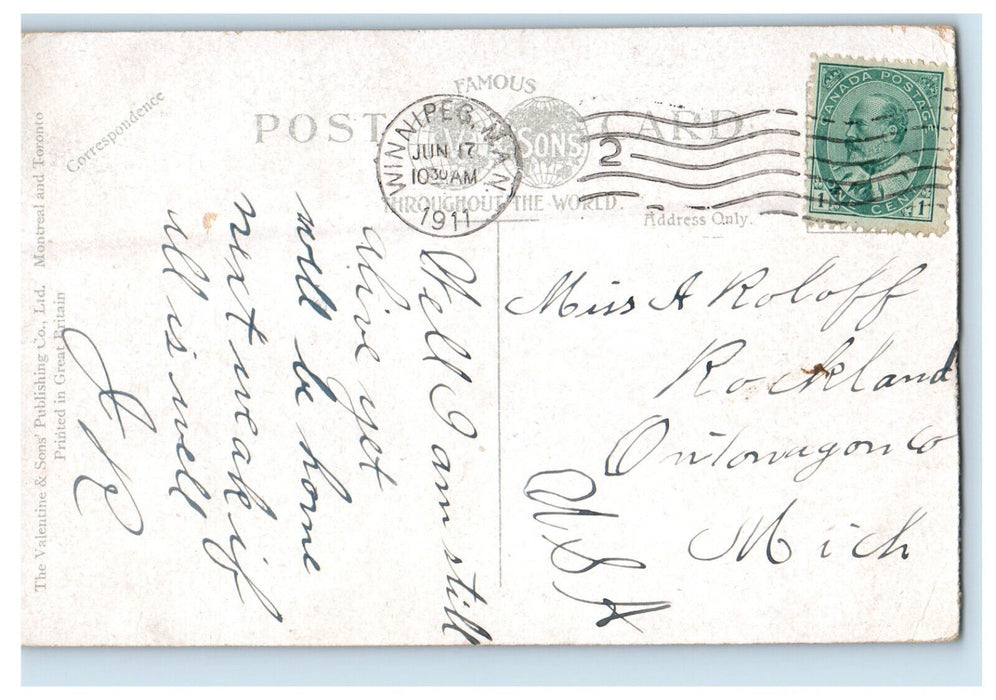 FAMOUS
POST CARD
SONS
THROUGHOUT THE WORLD.
WINNIPEG, MAN.
JUN 17
10 30 AM
1911
2
CANADA POSTAGE
1 ONE CENT 1
Address Only.
Correspondence
The Valentine & Sons' Publishing Co., Ltd. Montreal and Toronto
Printed in Great Britain
Well I am still
alive yet
will be home
next weak if
all is well
Miss A Roloff
Rockland
Ontonagon Co
Mich
USA